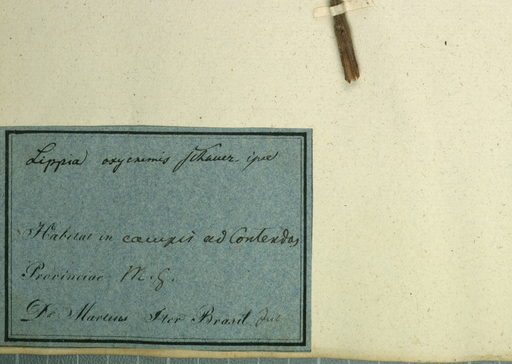 Lippia oxycnemis Schauer. ipse
Habitat in campis ad Contendas
Provinciae M. G.
Dr. Martius Iter Brasil